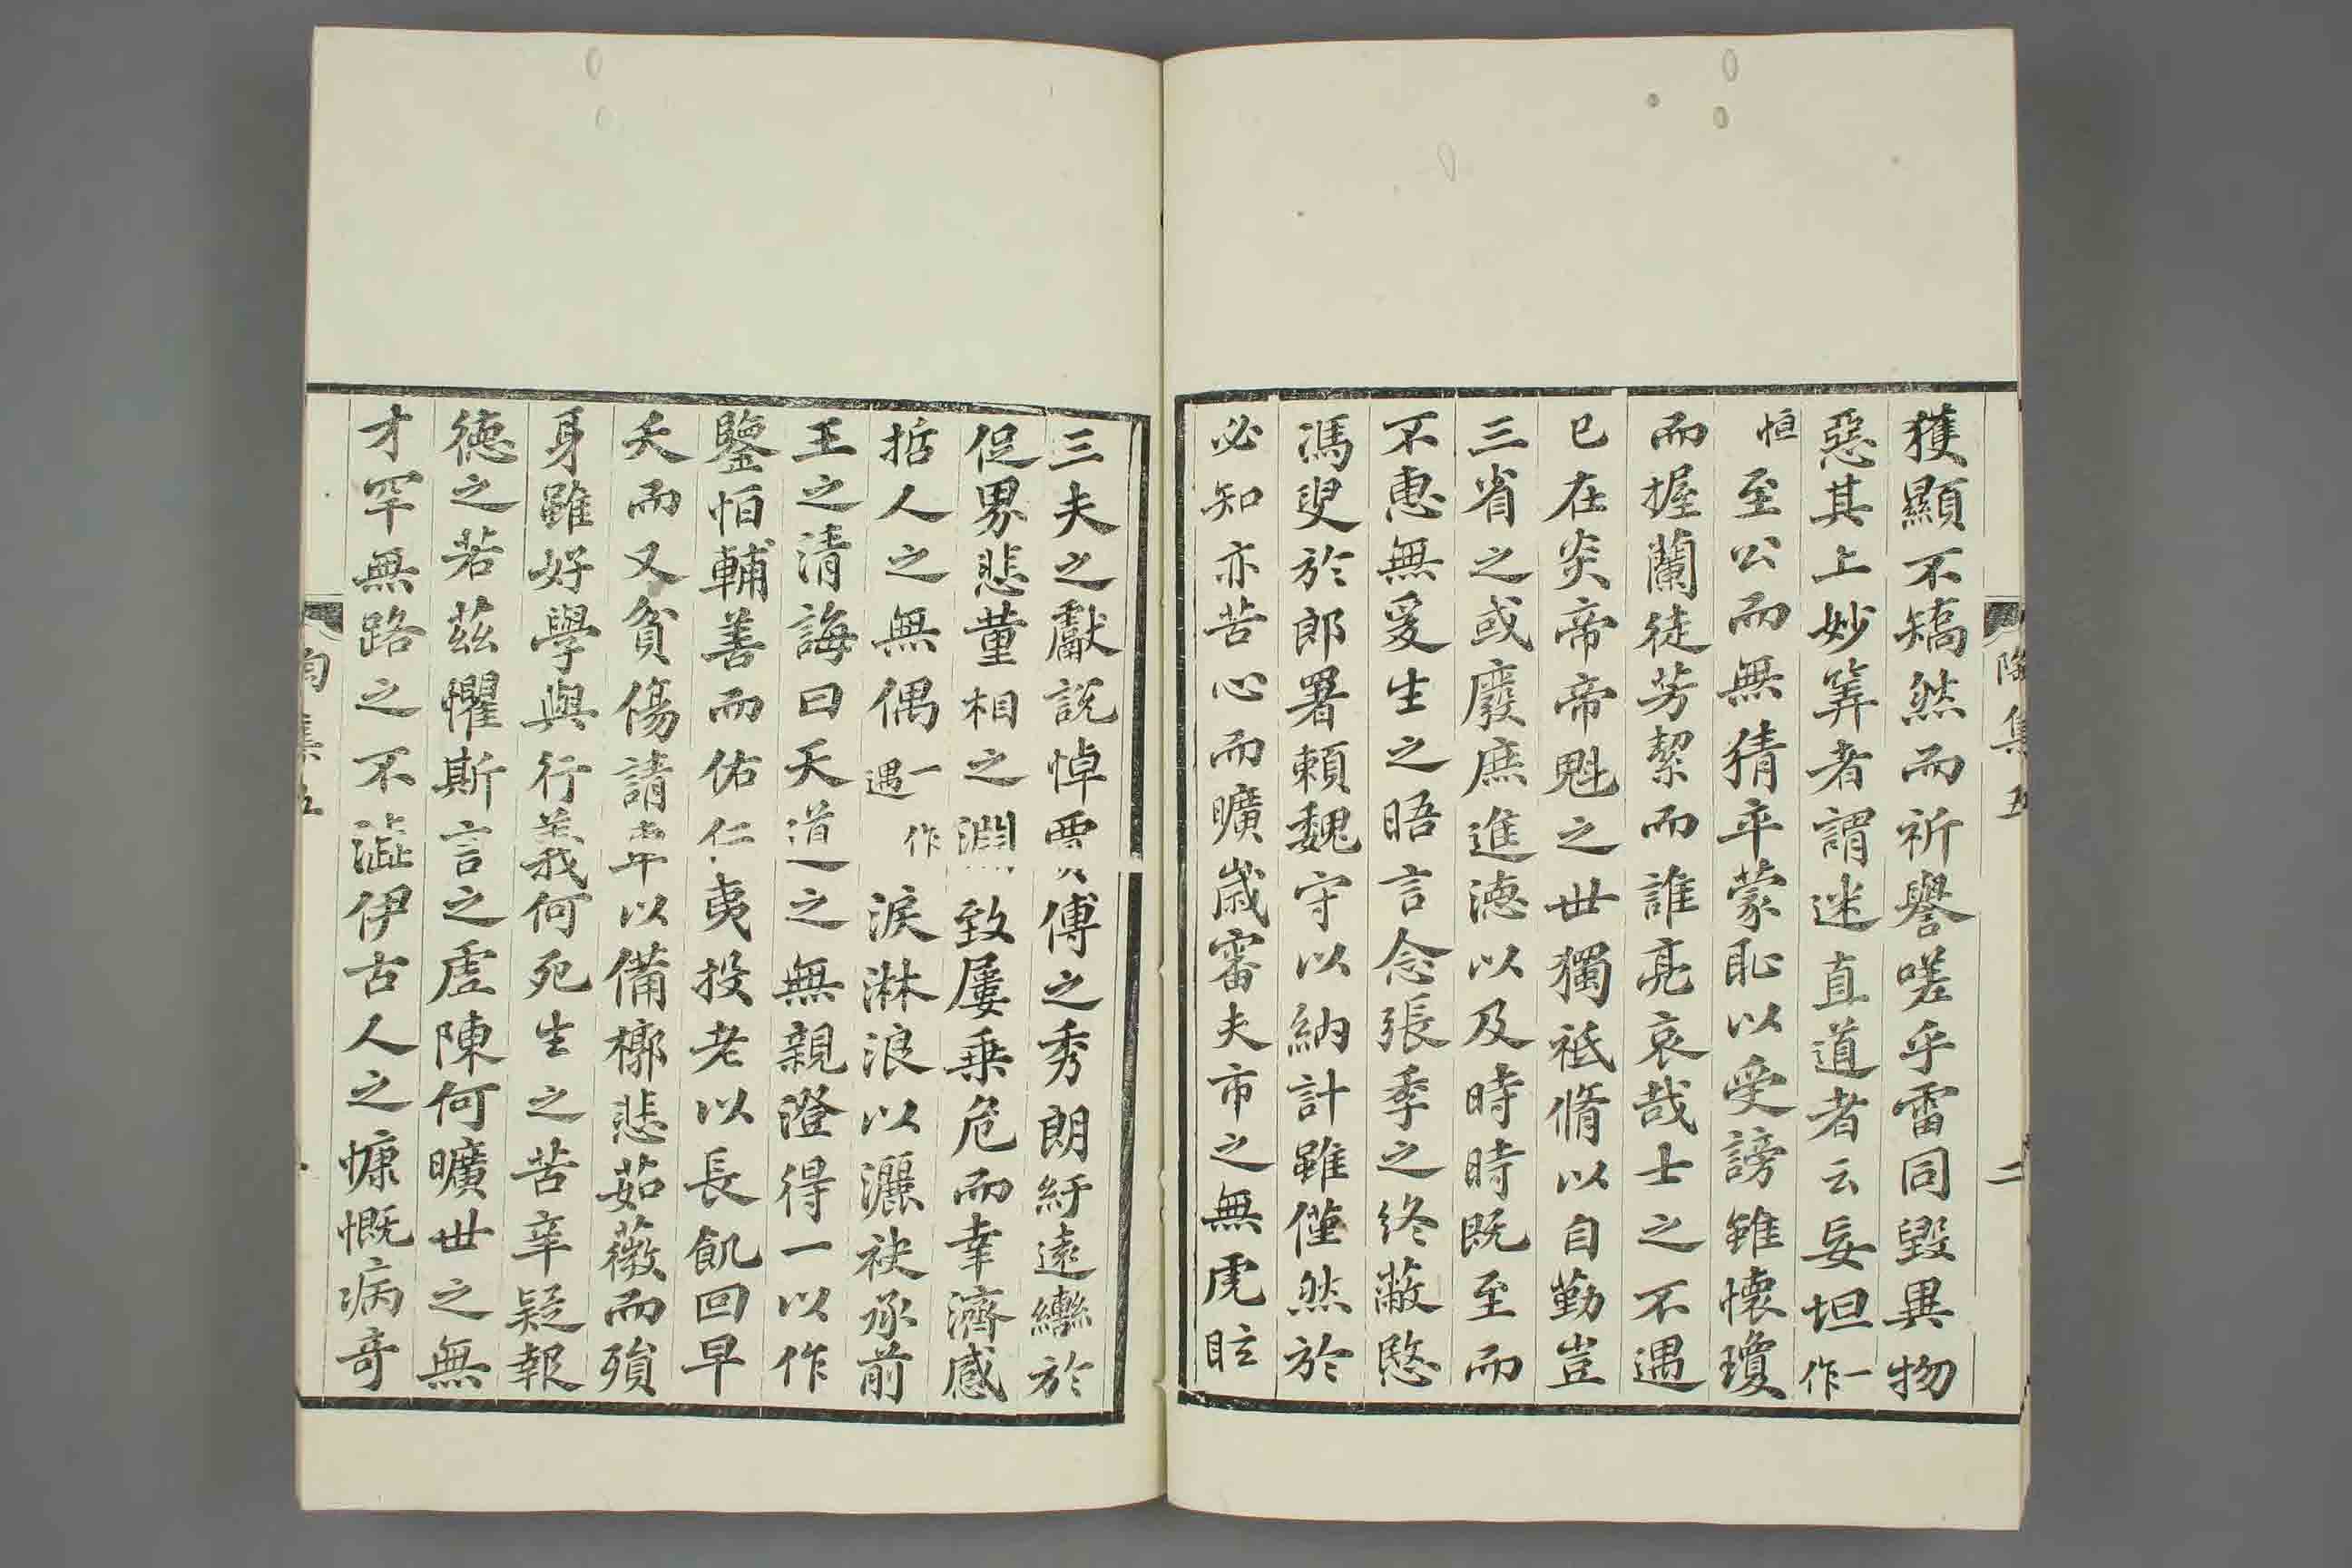 陶集五
二
獲顯不矯然而祈譽嗟乎雷同毀異物
惡其上妙筭者謂迷直道者云妄坦一作
恒至公而無猜卒蒙恥以受謗雖懷瓊
而握蘭徒芳絜而誰亮哀哉士之不遇
已在炎帝帝魁之世獨祗脩以自勤豈
三省之或廢庶進德以及時時既至而
不惠無爰生之晤言念張季之終蔽愍
馮叟於郎署賴魏守以納計雖僅然於
必知亦苦心而曠歲審夫市之無虎眩
三夫之獻說悼賈傅之秀朗紆遠轡於
促界悲董相之淵致屢乗危而幸濟感
哲人之無偶一作遇淚淋浪以灑袂承前
王之清誨曰天道之無親澄得一以作
鑒恒輔善而佑仁夷投老以長飢回早
夭而又貧傷請車以備槨悲茹薇而殞
身雖好學與行義何死生之苦辛疑報
德之若茲懼斯言之虛陳何曠世之無
才罕無路之不澁伊古人之慷慨病奇